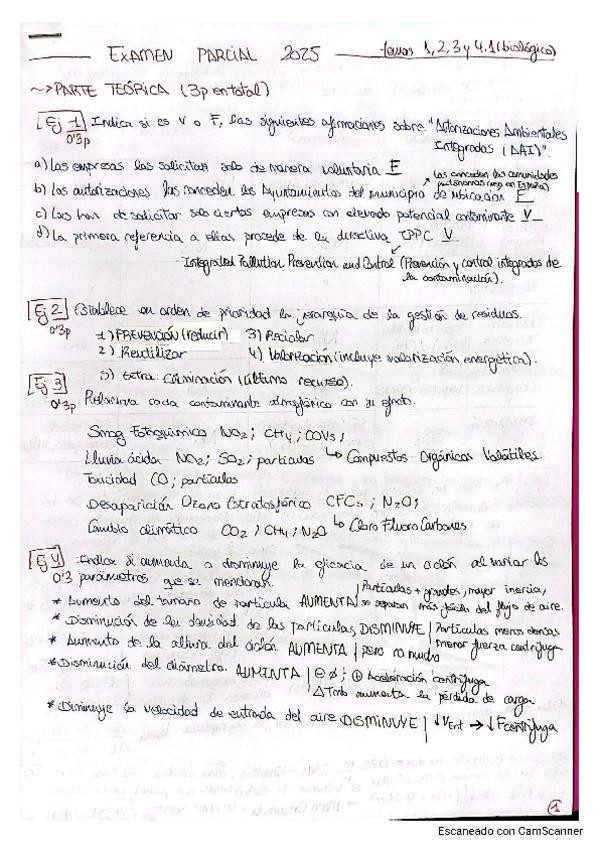 EXAMEN PARCIAL 2025 temas 1, 2, 3 y 4.1 (biológico)
~> PARTE TEÓRICA (3p en total)
Ej 1 Indica si es V o F, las siguientes afirmaciones sobre "Autorizaciones Ambientales
0'3p Integradas (AAI)".
a) Las empresas las solicitan solo de manera voluntaria F
Las conceden las comunidades
autónomas (en España)
b) Las autorizaciones las conceden los Ayuntamientos del municipio de ubicación F
c) Las han de solicitar solo ciertas empresas con elevado potencial contaminante V
d) La primera referencia a ellas procede de la directiva IPPC V
Integrated Pollution Prevention and Control (Prevención y control integrados de
la contaminación).
Ej 2 Establece un orden de prioridad la jerarquía de la gestión de residuos.
0'3p 1) PREVENCIÓN (reducir) 3) Reciclar
2) Reutilizar 4) Valorización (incluye valorización energética).
5) Extra: Eliminación (último recurso).
Ej 3 Relaciona cada contaminante atmosférico con su efecto.
0'3p
Smog Fotoquímico NO2; CH4; COVs;
Lluvia ácida NO2; SO2; partículas ↳ Compuestos Orgánicos Volátiles
Toxicidad CO; partículas
Desaparición Ozono Estratosférico CFCs; N2O;
Cambio climático CO2; CH4; N2O ↳ Cloro Fluoro Carbonos
Ej 4 Indica si aumenta o disminuye la eficacia de un ciclón al variar los
0'3 parámetros que se mencionan.
* Aumento del tamaño de partícula AUMENTA | Partículas + grandes, mayor inercia,
se separan más fácil del flujo de aire.
* Disminución de la densidad de las partículas, DISMINUYE | Partículas menos densas
menor fuerza centrífuga
* Aumento de la altura del ciclón AUMENTA | pero no mucho
* Disminución del diámetro. AUMINTA | ⊖ ø; ⊕ Aceleración centrífuga
△ Tmb aumenta la pérdida de carga
* Disminuye la velocidad de entrada del aire DISMINUYE | ↓ VEnt → ↓ Fcentrífuga
1
Escaneado con CamScanner